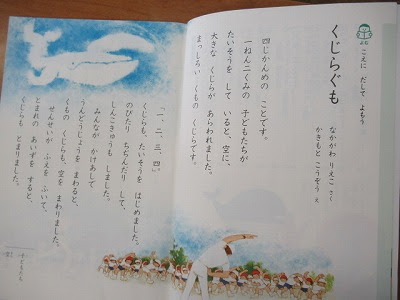 よむ
こえに だして よもう
くじらぐも
なかがわ りえこ さく
かきもと こうぞう え
四じかんめの ことです。
一ねん二くみの 子どもたちが
たいそうを して いると、空に、
大きな くじらが あらわれました。
まっしろい くもの くじらです。
「一、二、三、四。」
くじらも、たいそうを はじめました。
のびたり ちぢんだり して、
しんこきゅうも しました。
みんなが かけあしで
うんどうじょうを まわると、
くもの くじらも、空を まわりました。
せんせいが ふえを ふいて、
とまれの あいずを すると、
くじらも とまりました。
子どもたち